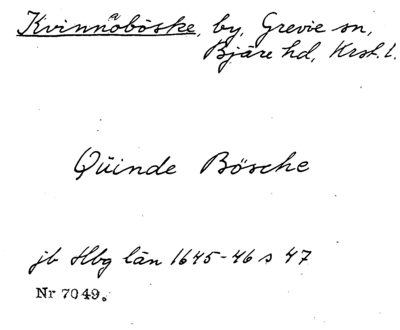 Kvinnaböske, by, Grevie sn,
Bjäre hd, Krst. l.
Qŭinde Bösche
jb Hbg län 1645-46 s 47
Nr 7049.